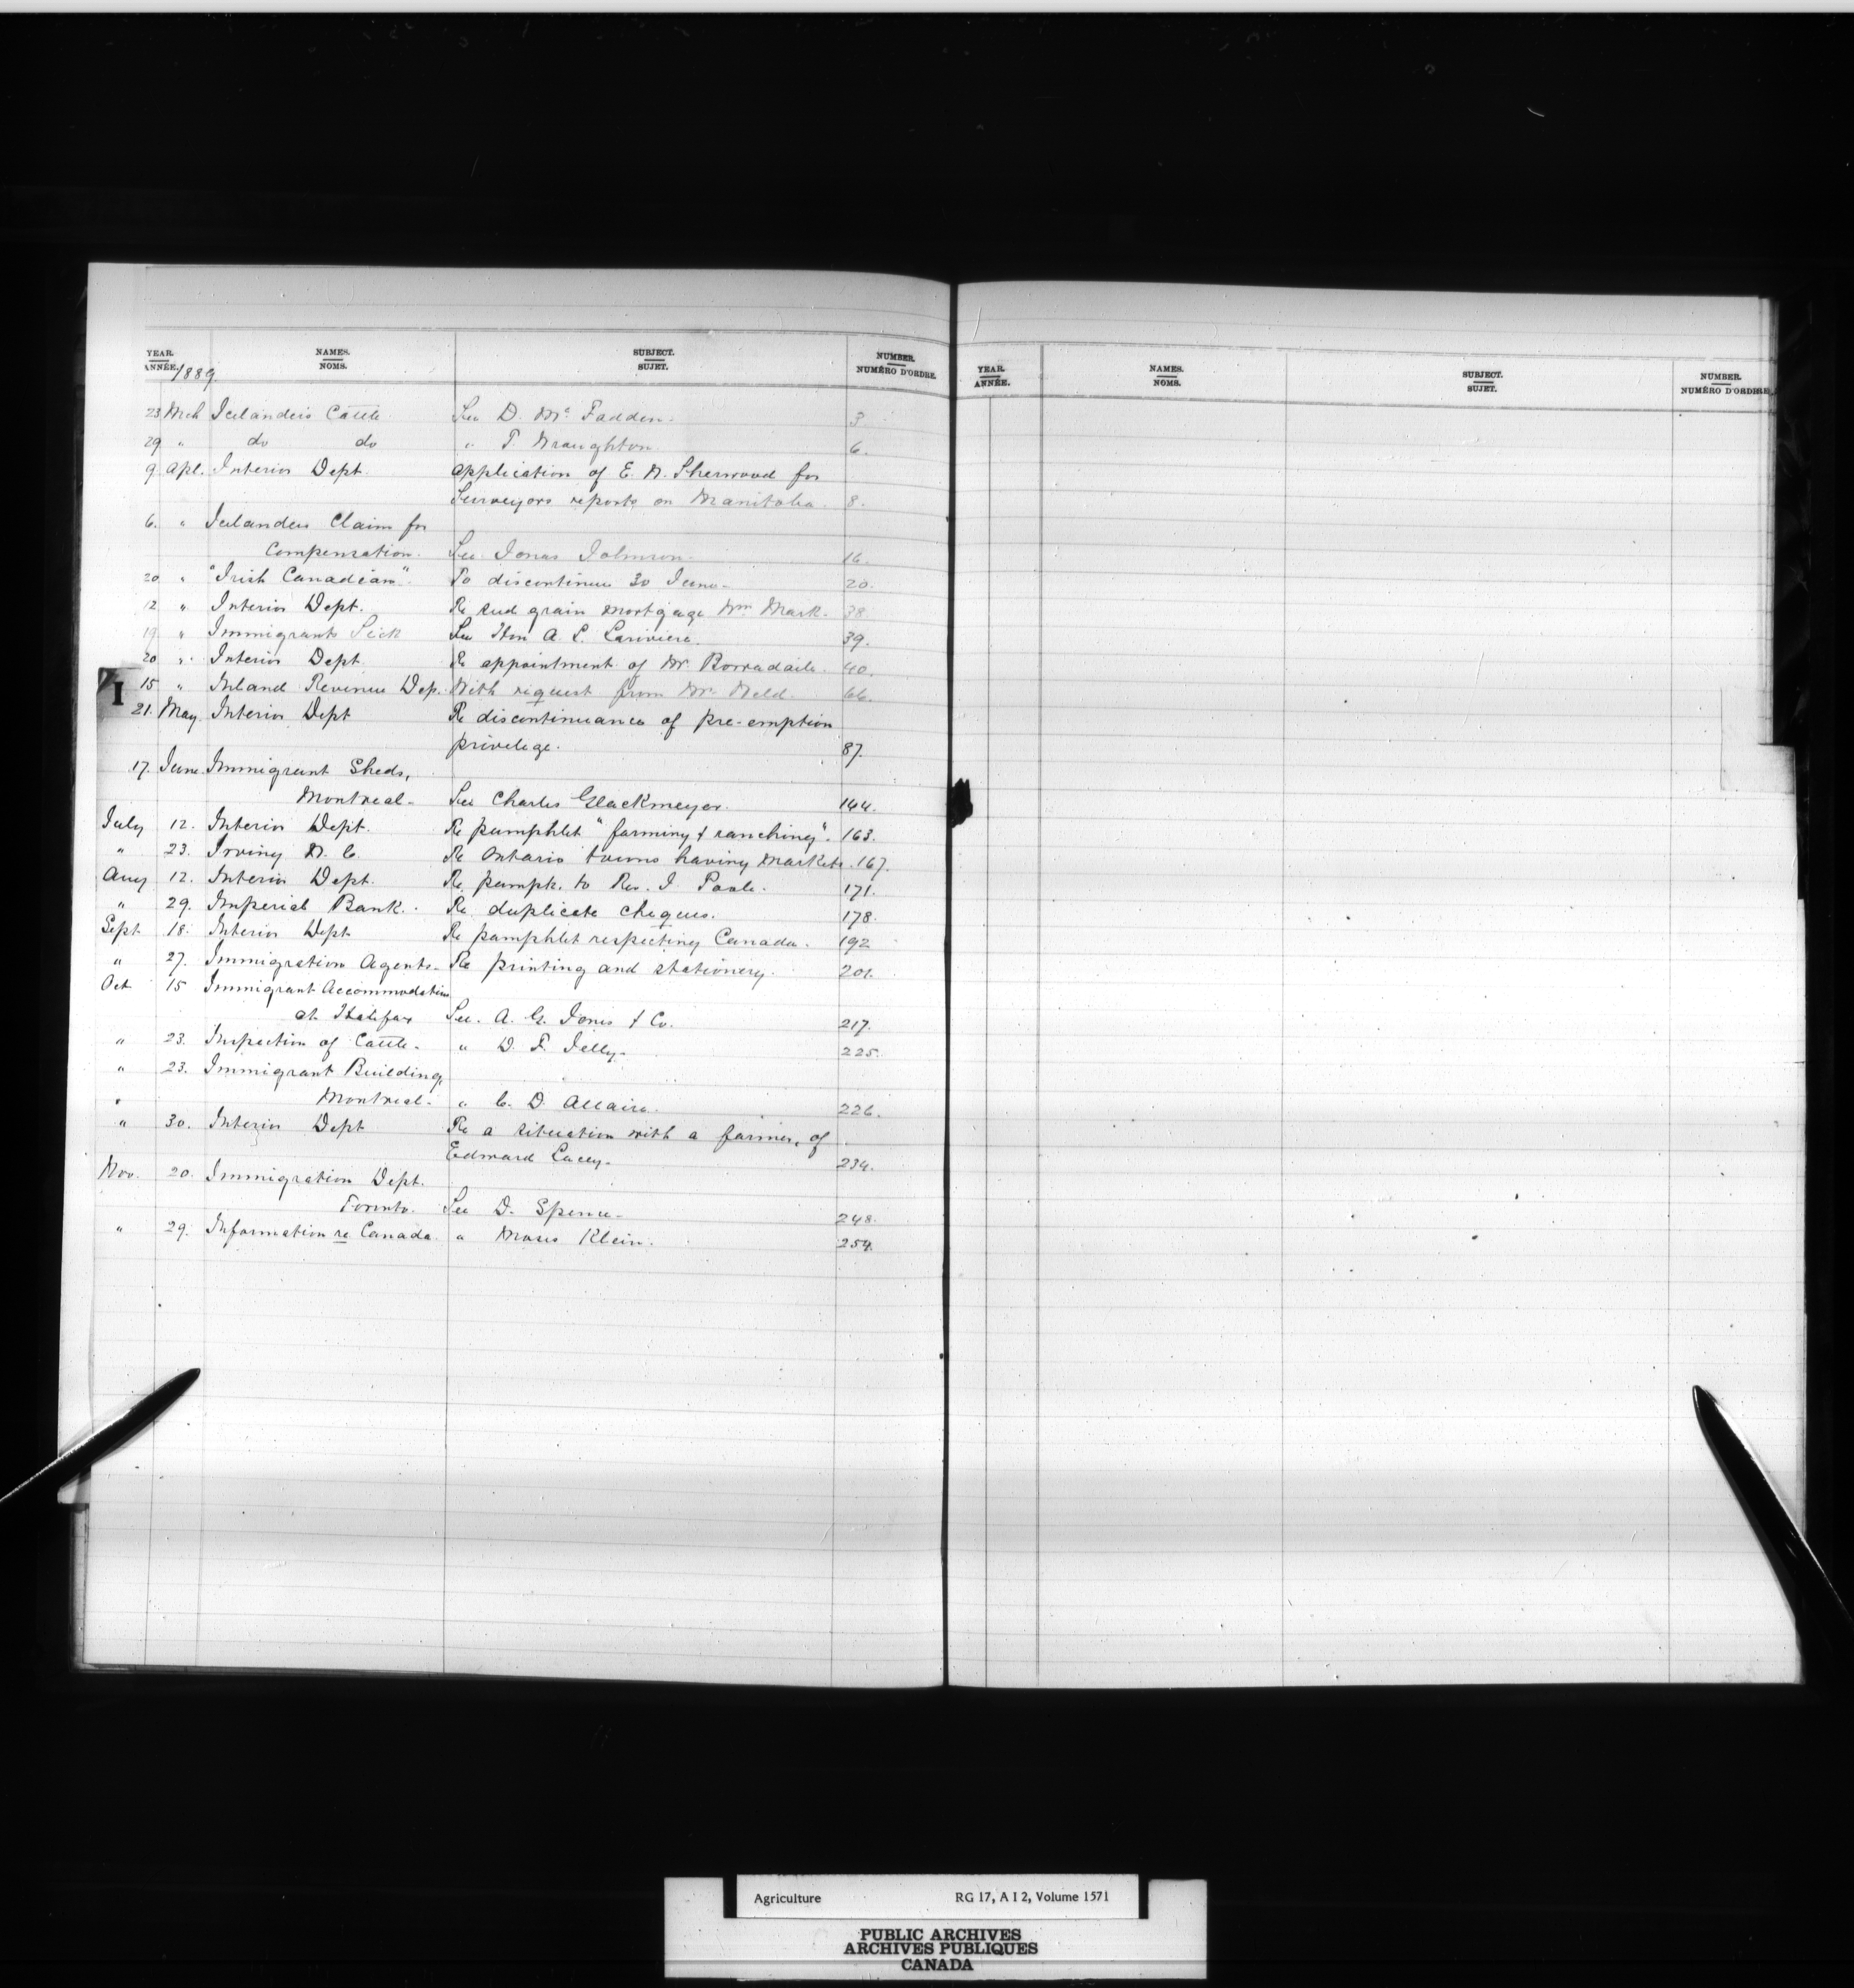 YEAR. NAMES. SUBJECT. NUMBER.
ANNÉE. NOMS. SUJET. NUMÉRO D'ORDRE.
1889
23 Mch Icelanders Cattle See D. Mc Fadden. 3
29 " do do " T. Wraughton 6.
9 Apl. Interior Dept. Application of E. W. Sherwood for
Surveyors reports on Manitoba. 8.
6. " Icelanders Claim for
Compensation. See Jonas Johnson. 16.
20 " "Irish Canadian". To discontinue 30 June. 20.
12 " Interior Dept. Re seed grain mortgage Wm Mark. 38
19 " Immigrants Sick See Hon A. L. Lariviere. 39.
20 " Interior Dept. Re appointment of Mr. Borradaile. 40.
I
15 " Inland Revenue Dep. With request from Mr. Weld. 66.
21. May Interior Dept Re discontinuance of pre-emption
privilege. 87.
17. June Immigrant Sheds,
Montreal. See Charles Glackmeyer. 144.
July 12. Interior Dept. Re pamphlet "farming & ranching". 163.
" 23. Irving W. C. Re Ontario towns having markets. 167.
Aug 12. Interior Dept. Re pamph. to Rev. J Poole. 171.
" 29. Imperial Bank. Re duplicate cheques. 178.
Sept 18. Interior Dept Re pamphlet respecting Canada. 192
" 27. Immigration Agents. Re printing and stationery. 201.
Oct 15 Immigrant Accommodation
at Halifax See. A. G. Jones & Co. 217.
" 23. Inspection of Cattle. " D. F. Jelly. 225.
" 23. Immigrant Building,
" Montreal. " C. D. Allaire. 226.
" 30. Interior Dept Re a situation with a farmer, of
Edward Lacey. 234.
Nov. 20. Immigration Dept.
Toronto. See D. Spence. 248.
" 29. Information re Canada. " Moses Klein. 254.
YEAR. NAMES. SUBJECT. NUMBER.
ANNÉE. NOMS. SUJET. NUMÉRO D'ORDRE.
Agriculture RG 17, A I 2, Volume 1571
PUBLIC ARCHIVES
ARCHIVES PUBLIQUES
CANADA